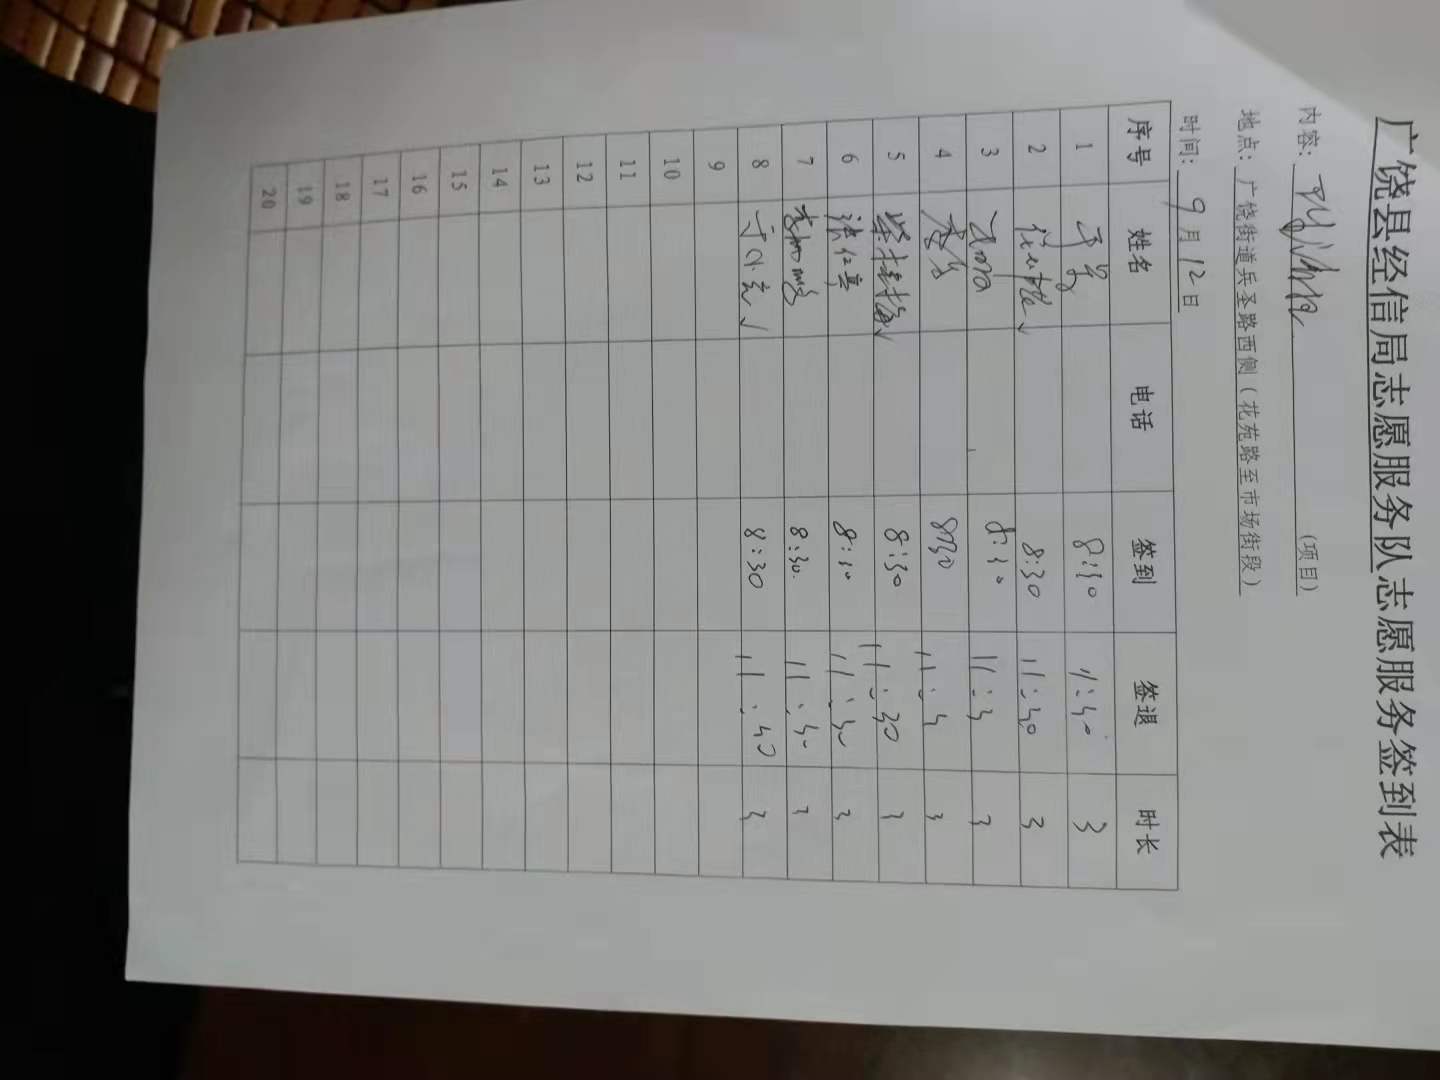 广饶县经信局志愿服务队志愿服务签到表
内容： (项目)
地点：广饶街道兵圣路西侧（花苑路至市场街段）
时间：9月12日
序号 姓名 电话 签到 签退 时长
1 8:30 11:30 3
2 8:30 11:30 3
3 8:30 11:3 3
4 830 11:3 3
5 8:30 11:30 3
6 8:30 11:30 3
7 8:30 11:30 3
8 8:30 11:30 3
9
10
11
12
13
14
15
16
17
18
19
20